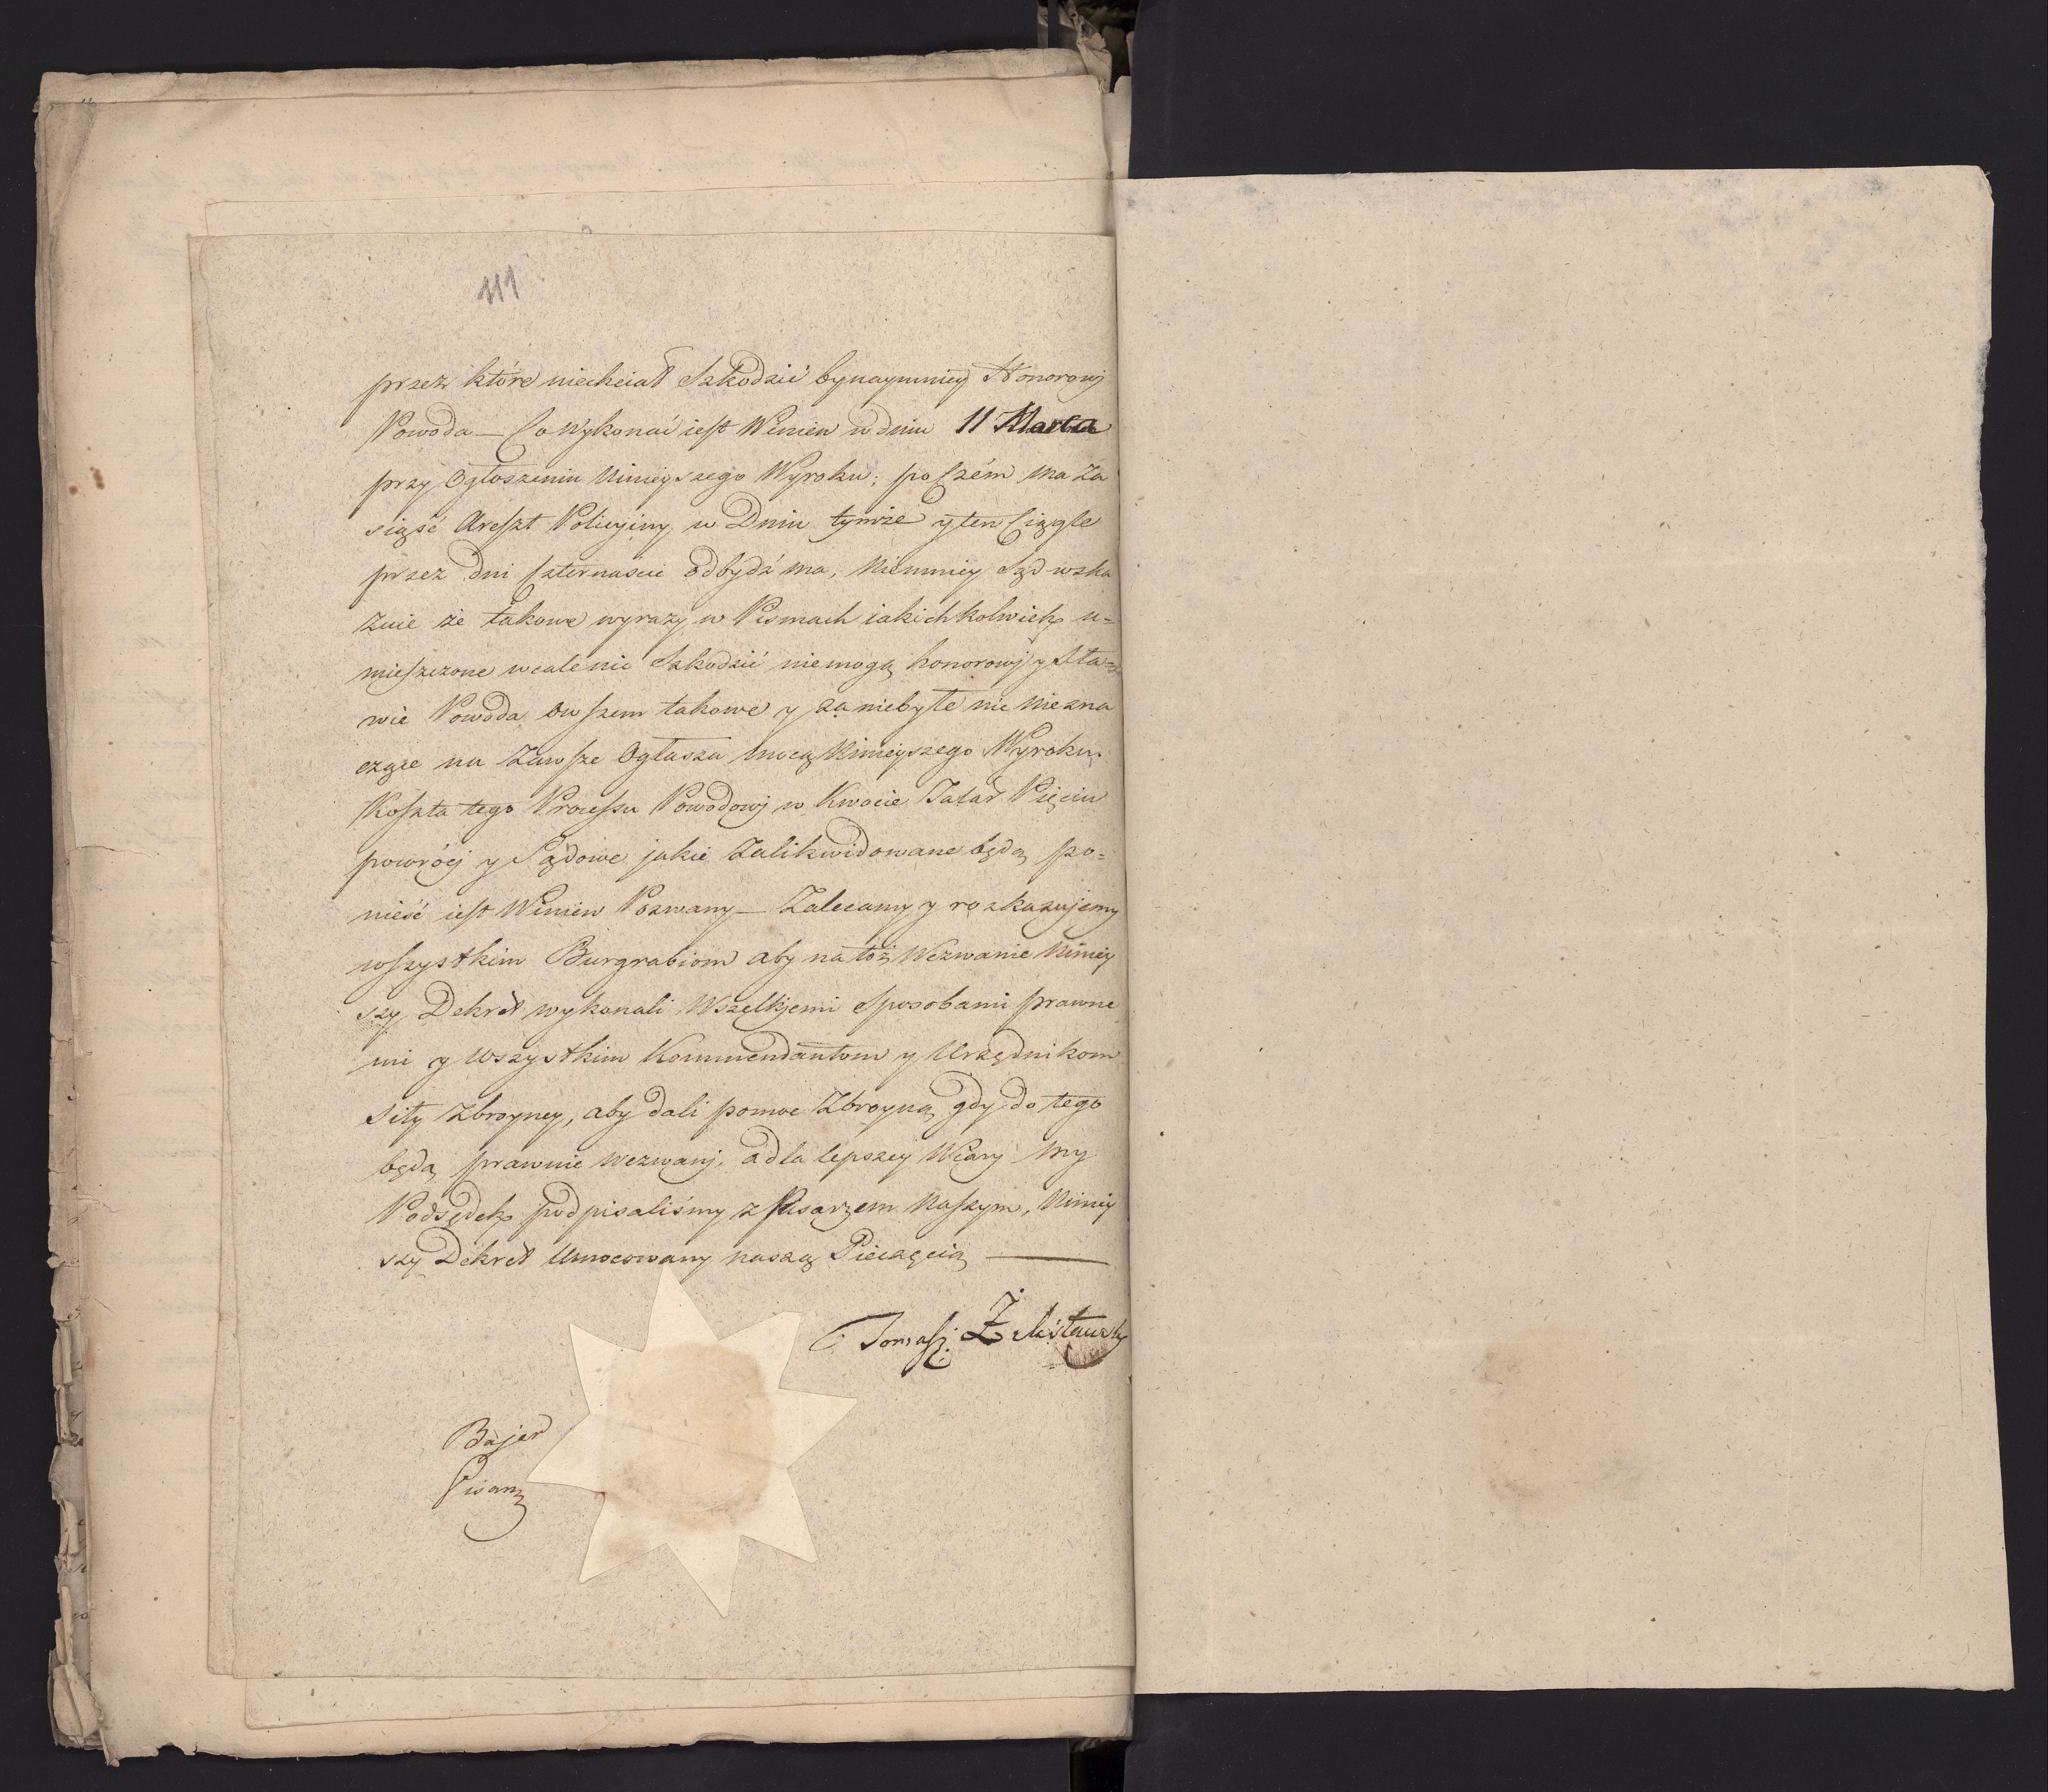 111
przez które niechciał Szkodzić bynaymniey Honorowj
Powoda — Co Wykonać iest Winien w dniu 11 Marca
przy Ogłoszeniu Ninieyszego Wyroku; poczém ma Za
siąśc Areszt Policyiny w Dniu tymże y ten Ciągle
przez dni czternascie odbydź ma, Niemniey Sąd wska
Zuie że takowe wyrazy w Pismach iakichkolwiek u=
mieszczone wcale nic Szkodzić niemogą honorowj y Sła=
wie Powoda owszem takowe y za niebyłe nic niezna
czące na Zawsze Ogłasza mocą Ninieyszego Wyroku.
Koszta tego Processu Powodowj w Kwocie Talar Pięciu
powróćj y Sądowe jakie Zalikwidowane będą po=
nieść iest Winien Pozwany — Zalecamy y rozkazujemy
wszystkim Burgrabiom aby na toż Wezwanie Niniey
szy Dekret wykonali Wszelkjemi Sposobami prawne
mi y Wszystkim Kommendantom y Urzędnikom
Siły Zbroyney, aby dali pomoc Zbroyną gdy do tego
będą prawnie wezwanj. a dla lepszey Wiary My
Podsędek podpisaliśmy z Pisarzem Naszym, Niniey
szy Dekret Umocowany naszą Pieczęcią —
Tomasz Żelisławsky
Bajer
Pisarz